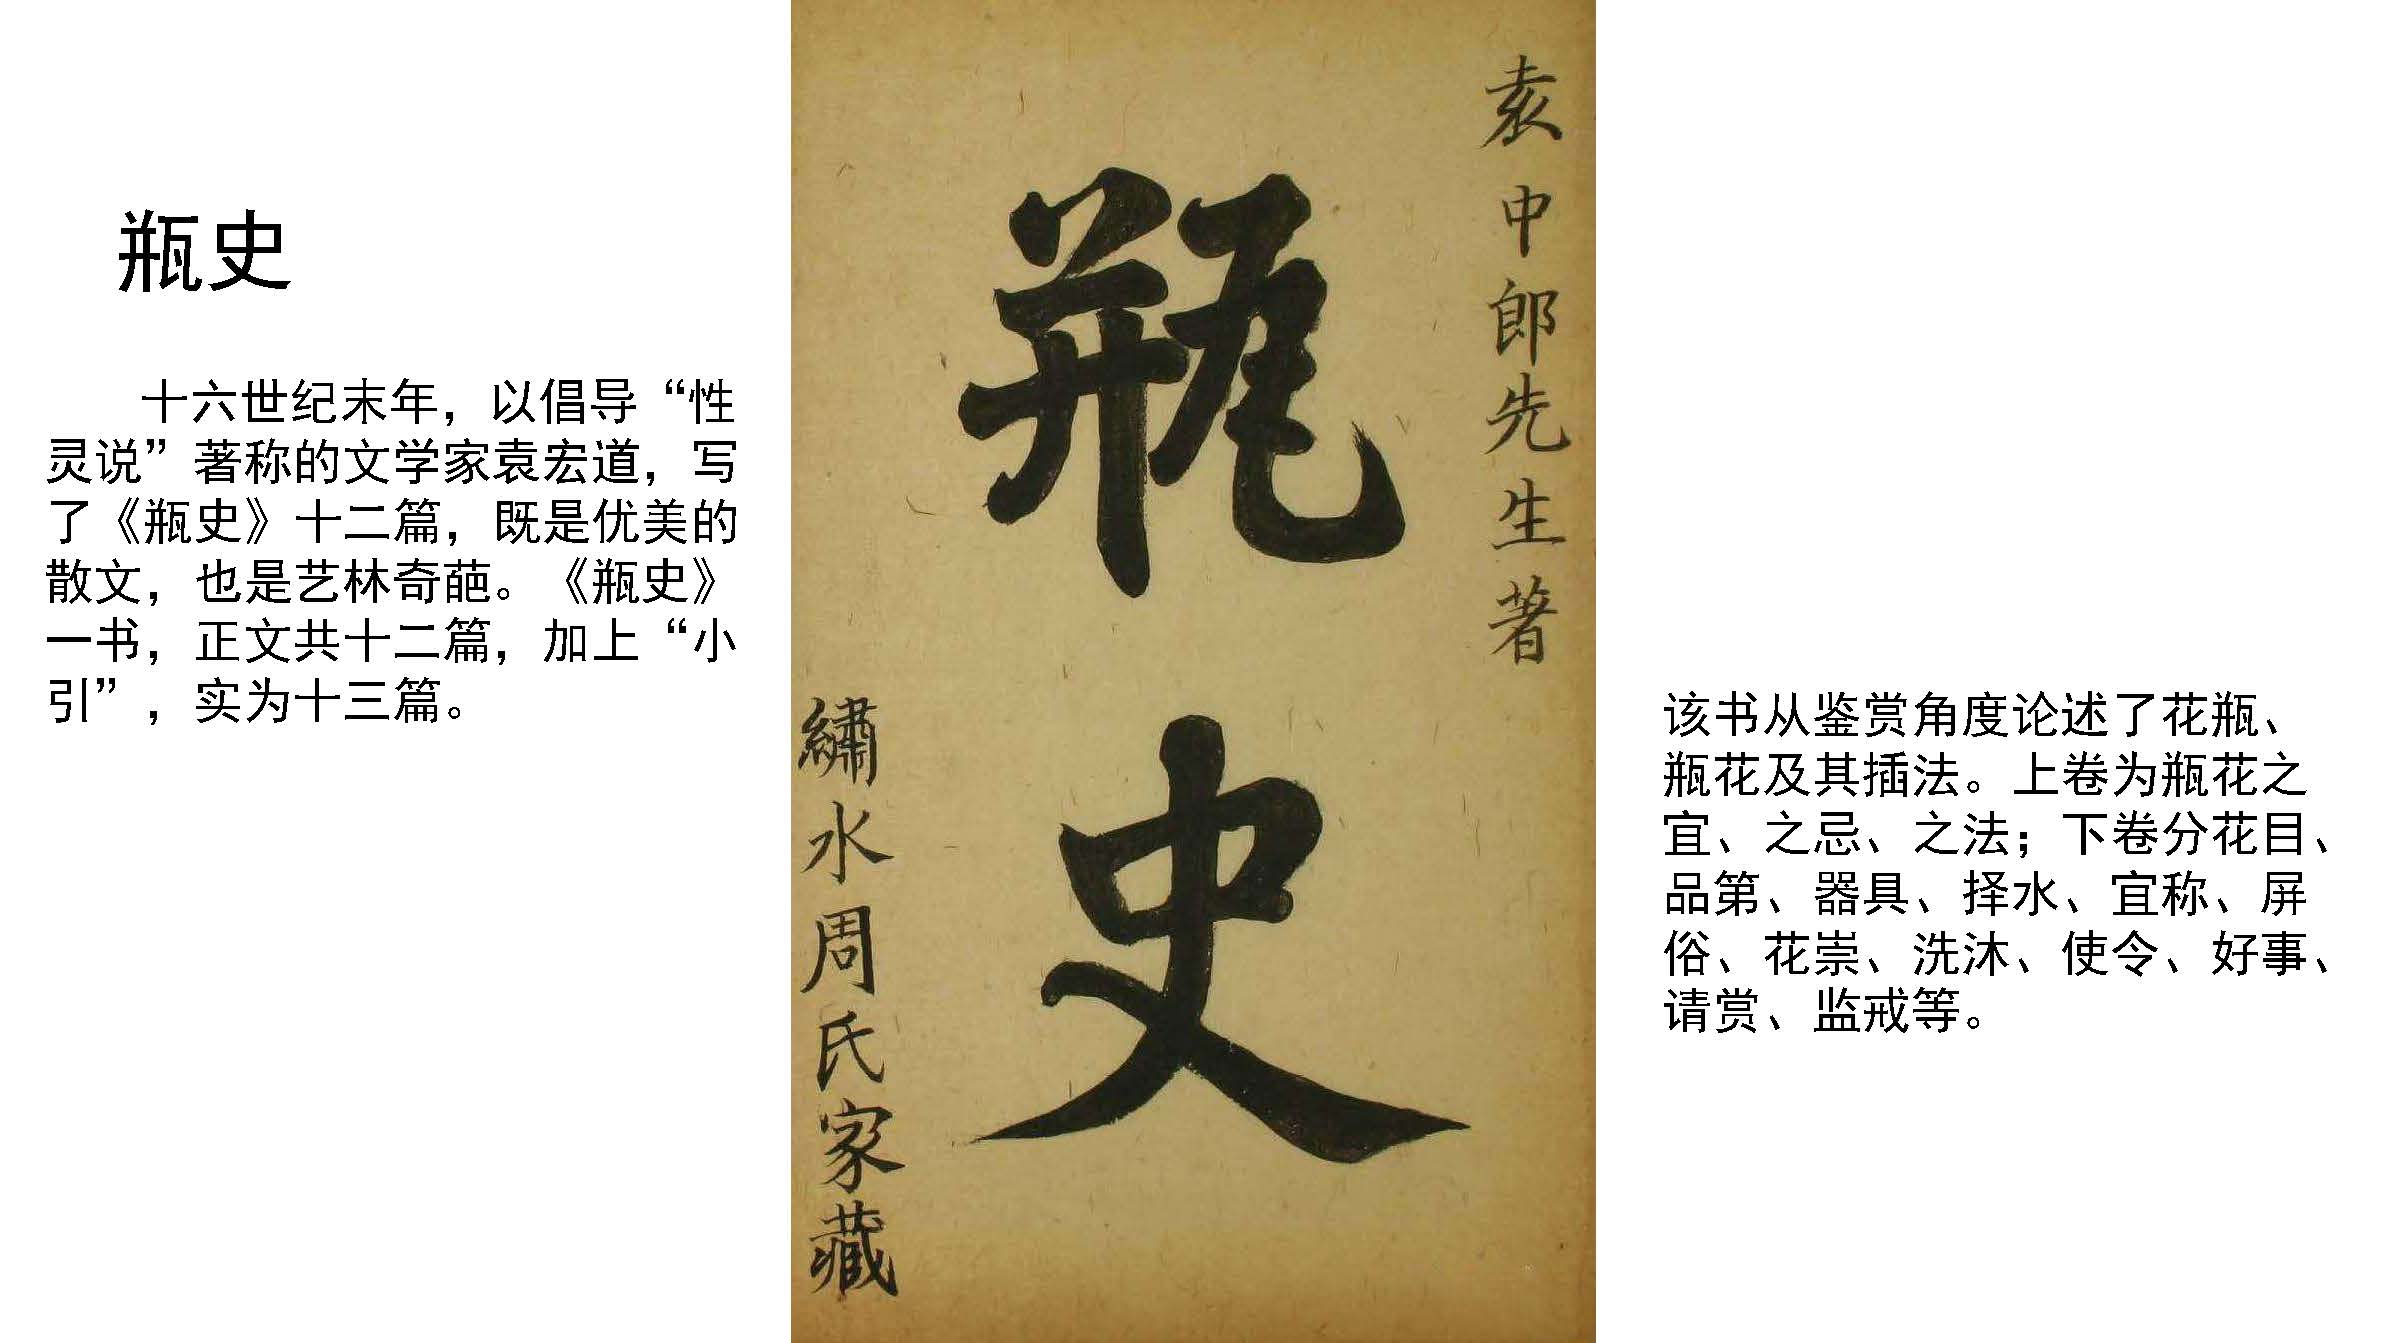 瓶史
十六世纪末年，以倡导“性
灵说”著称的文学家袁宏道，写
了《瓶史》十二篇，既是优美的
散文，也是艺林奇葩。《瓶史》
一书，正文共十二篇，加上“小
引”，实为十三篇。
袁中郎先生著
瓶史
繡水周氏家藏
该书从鉴赏角度论述了花瓶、
瓶花及其插法。上卷为瓶花之
宜、之忌、之法；下卷分花目、
品第、器具、择水、宜称、屏
俗、花崇、洗沐、使令、好事、
请赏、监戒等。